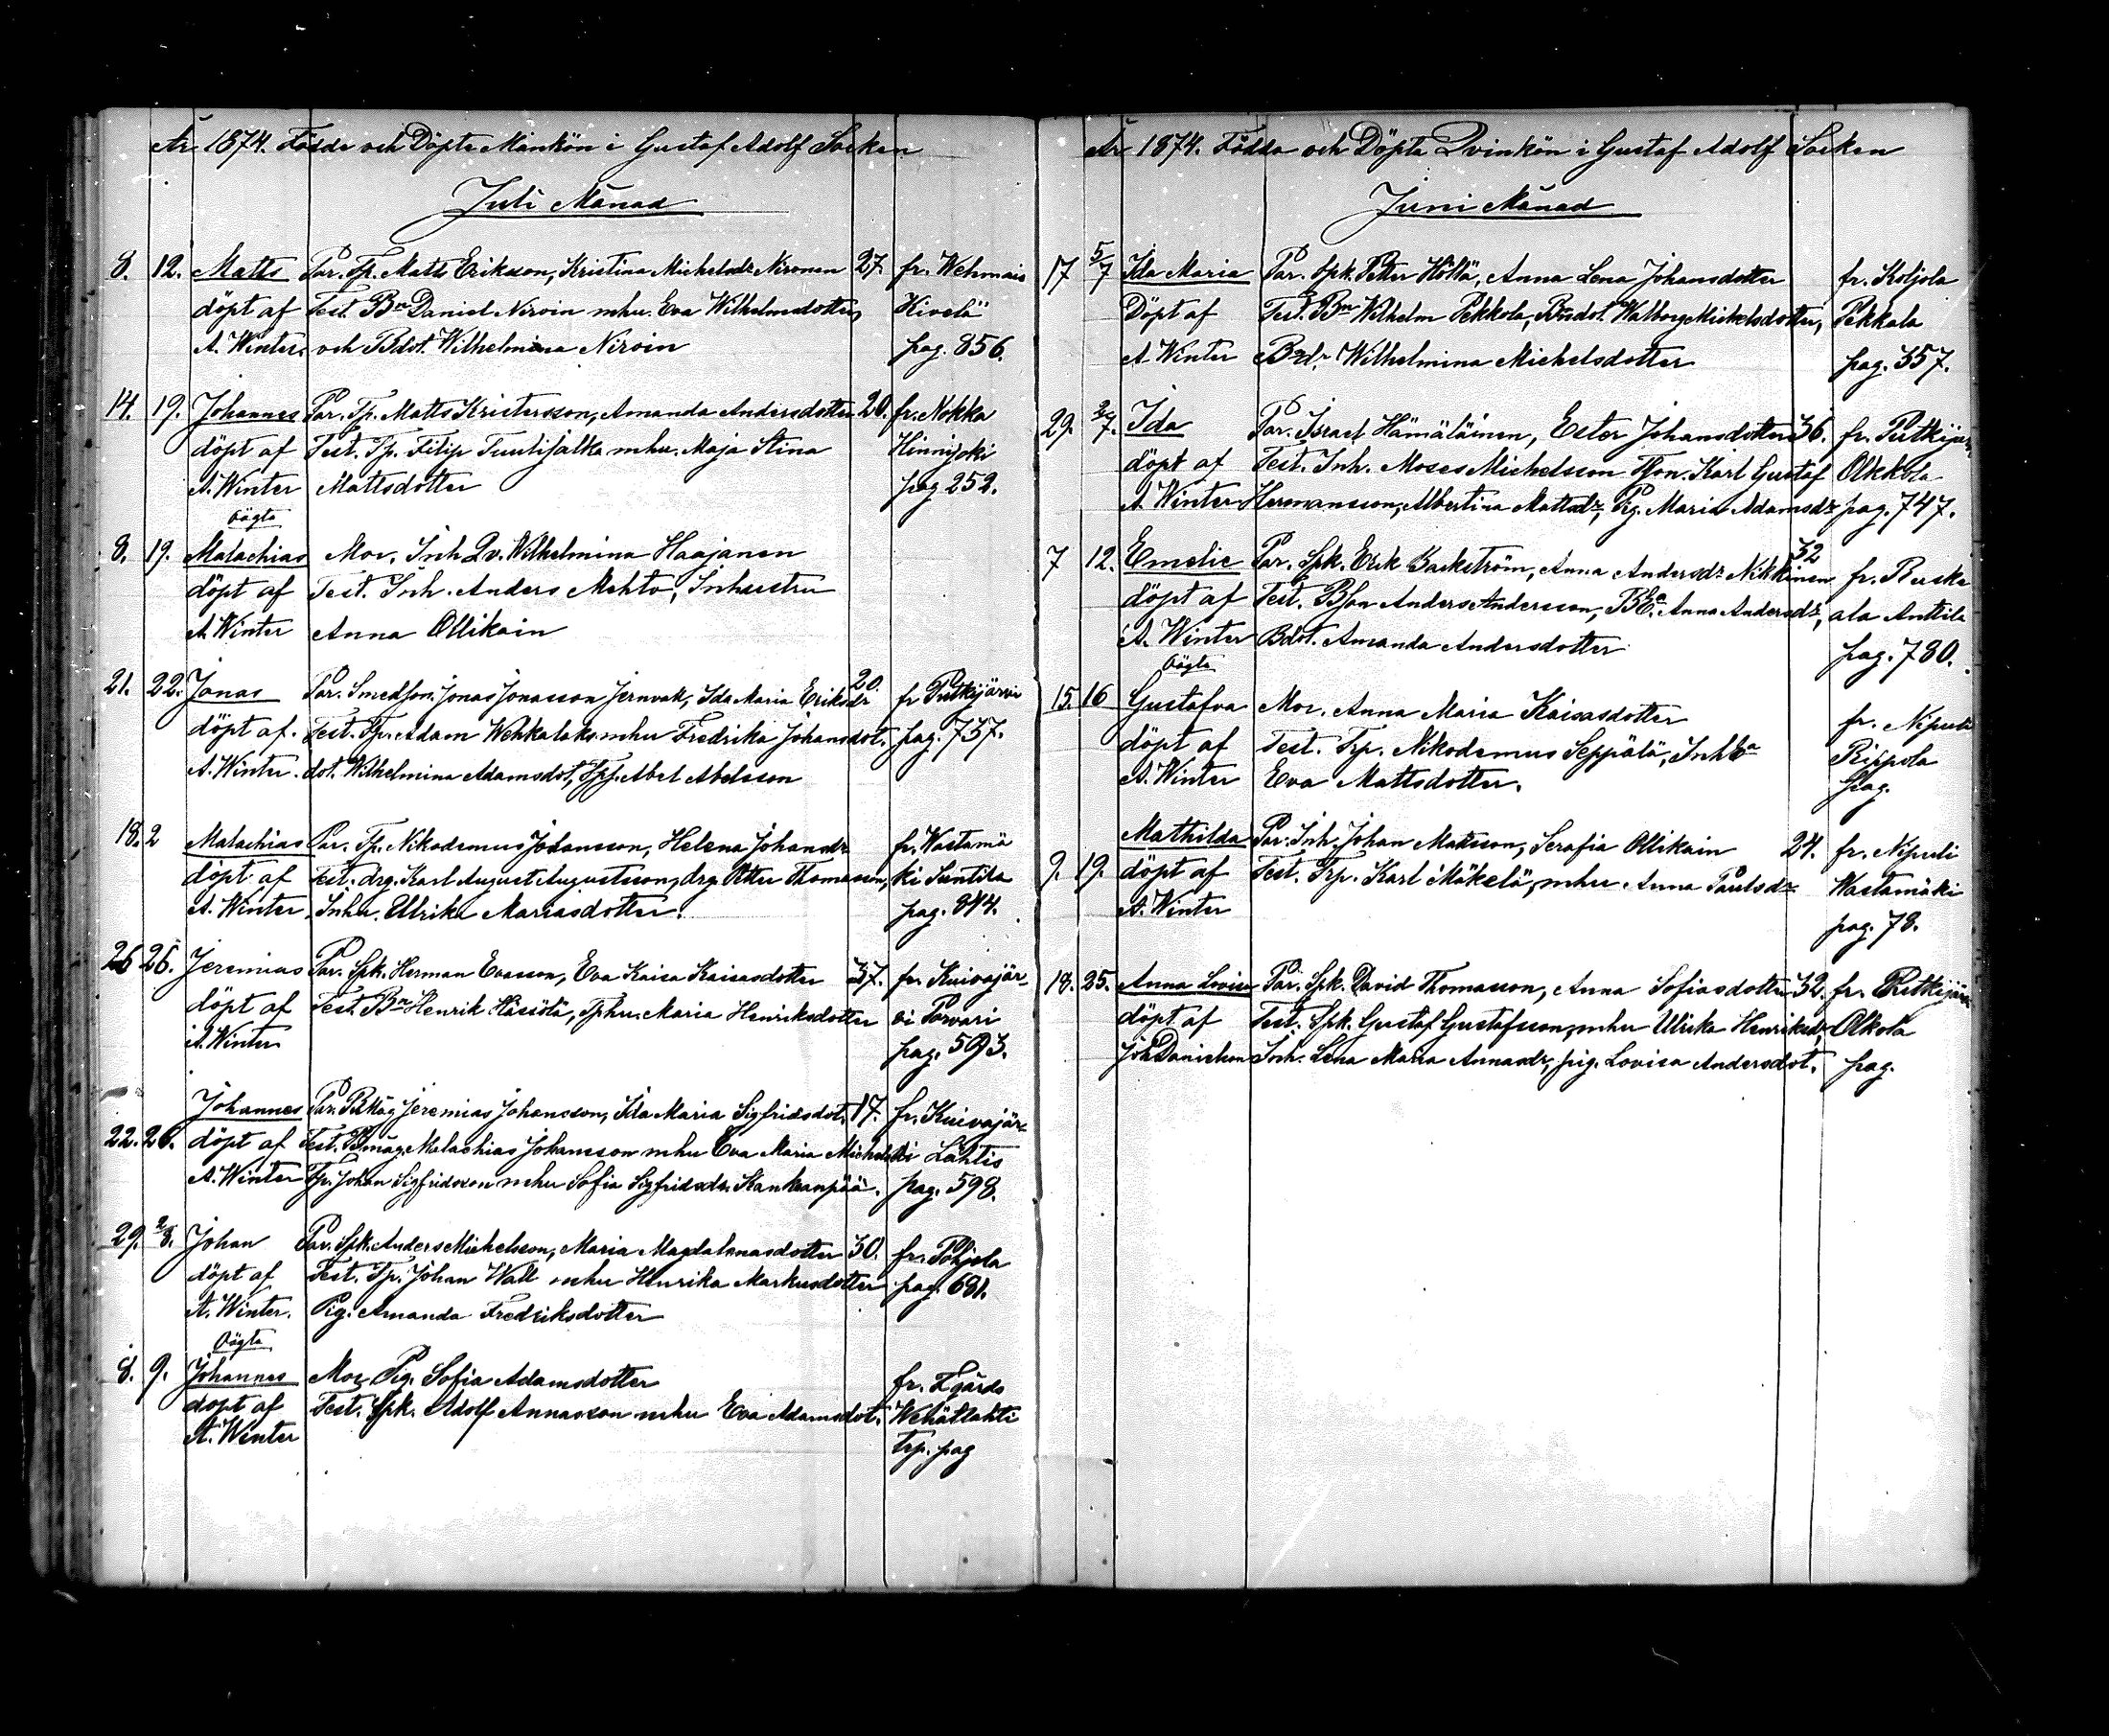 År 1874. Födde och Döpte Mankön i Gustaf Adolf Socken
Juli Månad
8. 12. Matts Par. Tp. Matts Eriksson, Kristina Michelsdr Nironen 27. fr. Wehmais
döpt af Test. Bn Daniel Niroin mhu. Eva Wilhelmsdotter, Hivelä
A. Winter. och Bdot. Wilhelmina Niroin pag. 856.
14. 19. Johannes Par. Tp. Matts Kristersson, Amanda Andersdotter 20. fr. Nokka
döpt af Test. Tp. Filip Tuulijalka mhu. Maja Stina Hinnijoki
A. Winter Mattsdotter pag 252.
Oägta
8. 19. Malachias Mor. Inh. Qv. Wilhelmina Haajanen
döpt af Test. Inh. Anders Mehto, Inhustru
A. Winter Anna Ollikain
21. 22. Jonas Par. Smedson. Jonas Jonasson Jernvak, Ida Maria Eriksdr 20. fr Putkijärvi
döpt af. Test. Tp. Adam Wehkalaks mhu Fredrika Johansdot. pag. 737.
A. Winter. dot. Wilhelmina Adamsdot, Abel Abelsson
18. 2 Malachias Par. Tp. Nikodemus Johansson, Helena Johansdr fr. Wastamä
döpt af Test. drg. Karl August Augustsson, drg. Otto Thomasson, ki Suntila
A. Winter. Inhu. Ullrika Mariasdotter. pag. 844.
26 26. Jeremias Par. Spk. Herman Evasson, Eva Kaisa Kaisasdotter 37. fr. Kuivajär-
döpt af Test. Bn Henrik Hässölä, Tphu. Maria Henriksdotter vi Porvari
A. Winter pag. 593.
Johannes Par. Bmåg Jeremias Johansson, Ida Maria Sigfridsdot. 17. fr. Kuivajär-
22. 26. döpt af Test. Bmåg. Malachias Johansson mhu Eva Maria vi Lahtis
A. Winter Tp. Johan Sigfridsson mhu Sofia Sigfridsdr. Kankanpää. pag. 598.
29. 2/8. Johan Par. Spk. Anders Michelsson, Maria Magdalenasdotter 30. fr. Pohjola
döpt af Test. Tp. Johan Wall mhu Henrika Markusdotter pag. 681.
A. Winter. Pig. Amanda Fredriksdotter
Oägta
8. 9. Johannes Mor Pig. Sofia Adamsdotter fr.
döpt af Test. Spk. Adolf Annasson mhu Eva Adamsdot. Wehätlahti
A. Winter Trp. pag
År 1874. Födda och Döpta Qvinkön i Gustaf Adolf Socken
Juni Månad
17 5/7 Ida Maria Par. Spk. Petter Höltä, Anna Lena Johansdotter fr. Koljola
Döpt af Test. Bn Wilhelm Pekkola, Bndot. Walborg Mickelsdotter, Pekkala
A. Winter Bndr. Wilhelmina Michelsdotter pag. 357.
29. 2/7. Ida Par. Israel Hämäläinen, Ester Johansdotter 36. fr. Putkijär.
döpt af Test. Inh. Moses Michelsson Tson. Karl Gustaf Olkkola
A. Winter Hermansson, Albertina Mattsdr, Pig. Maria Adamsdr pag. 747.
7 12. Emelie Par. Spk. Erik Backström, Anna Andersdr Nikkinen 32 fr. Ruska
döpt af Test. Bson Anders Andersson, Anna Andersdr, ala Anttila
A. Winter Bdot. Amanda Andersdotter pag. 780.
Oägta
15. 16 Gustafva Mor. Anna Maria Kaisasdotter fr. Nipuli
döpt af Test. Trp. Nikodemus Seppälä, Inhka Rippola
A. Winter Eva Mattsdotter. pag.
Mathilda Par. Inh. Johan Matsson, Serafia Ollikain 24. fr. Nipuli
9. 19. döpt af Test. Trp. Karl Mäkelä, mhu Anna Paulsdr Wastamäki
A. Winter pag. 78.
18. 25. Anna Lovisa Par. Spk. David Thomasson, Anna Sofiasdotter 32. fr. Putkijärvi
döpt af Test. Spk. Gustaf Gustafsson, mhu Ulrika Henriksdr, Olkola
Joh Danielson Inh. Lena Maria Annasdr, pig. Lovisa Andersdot. pag.